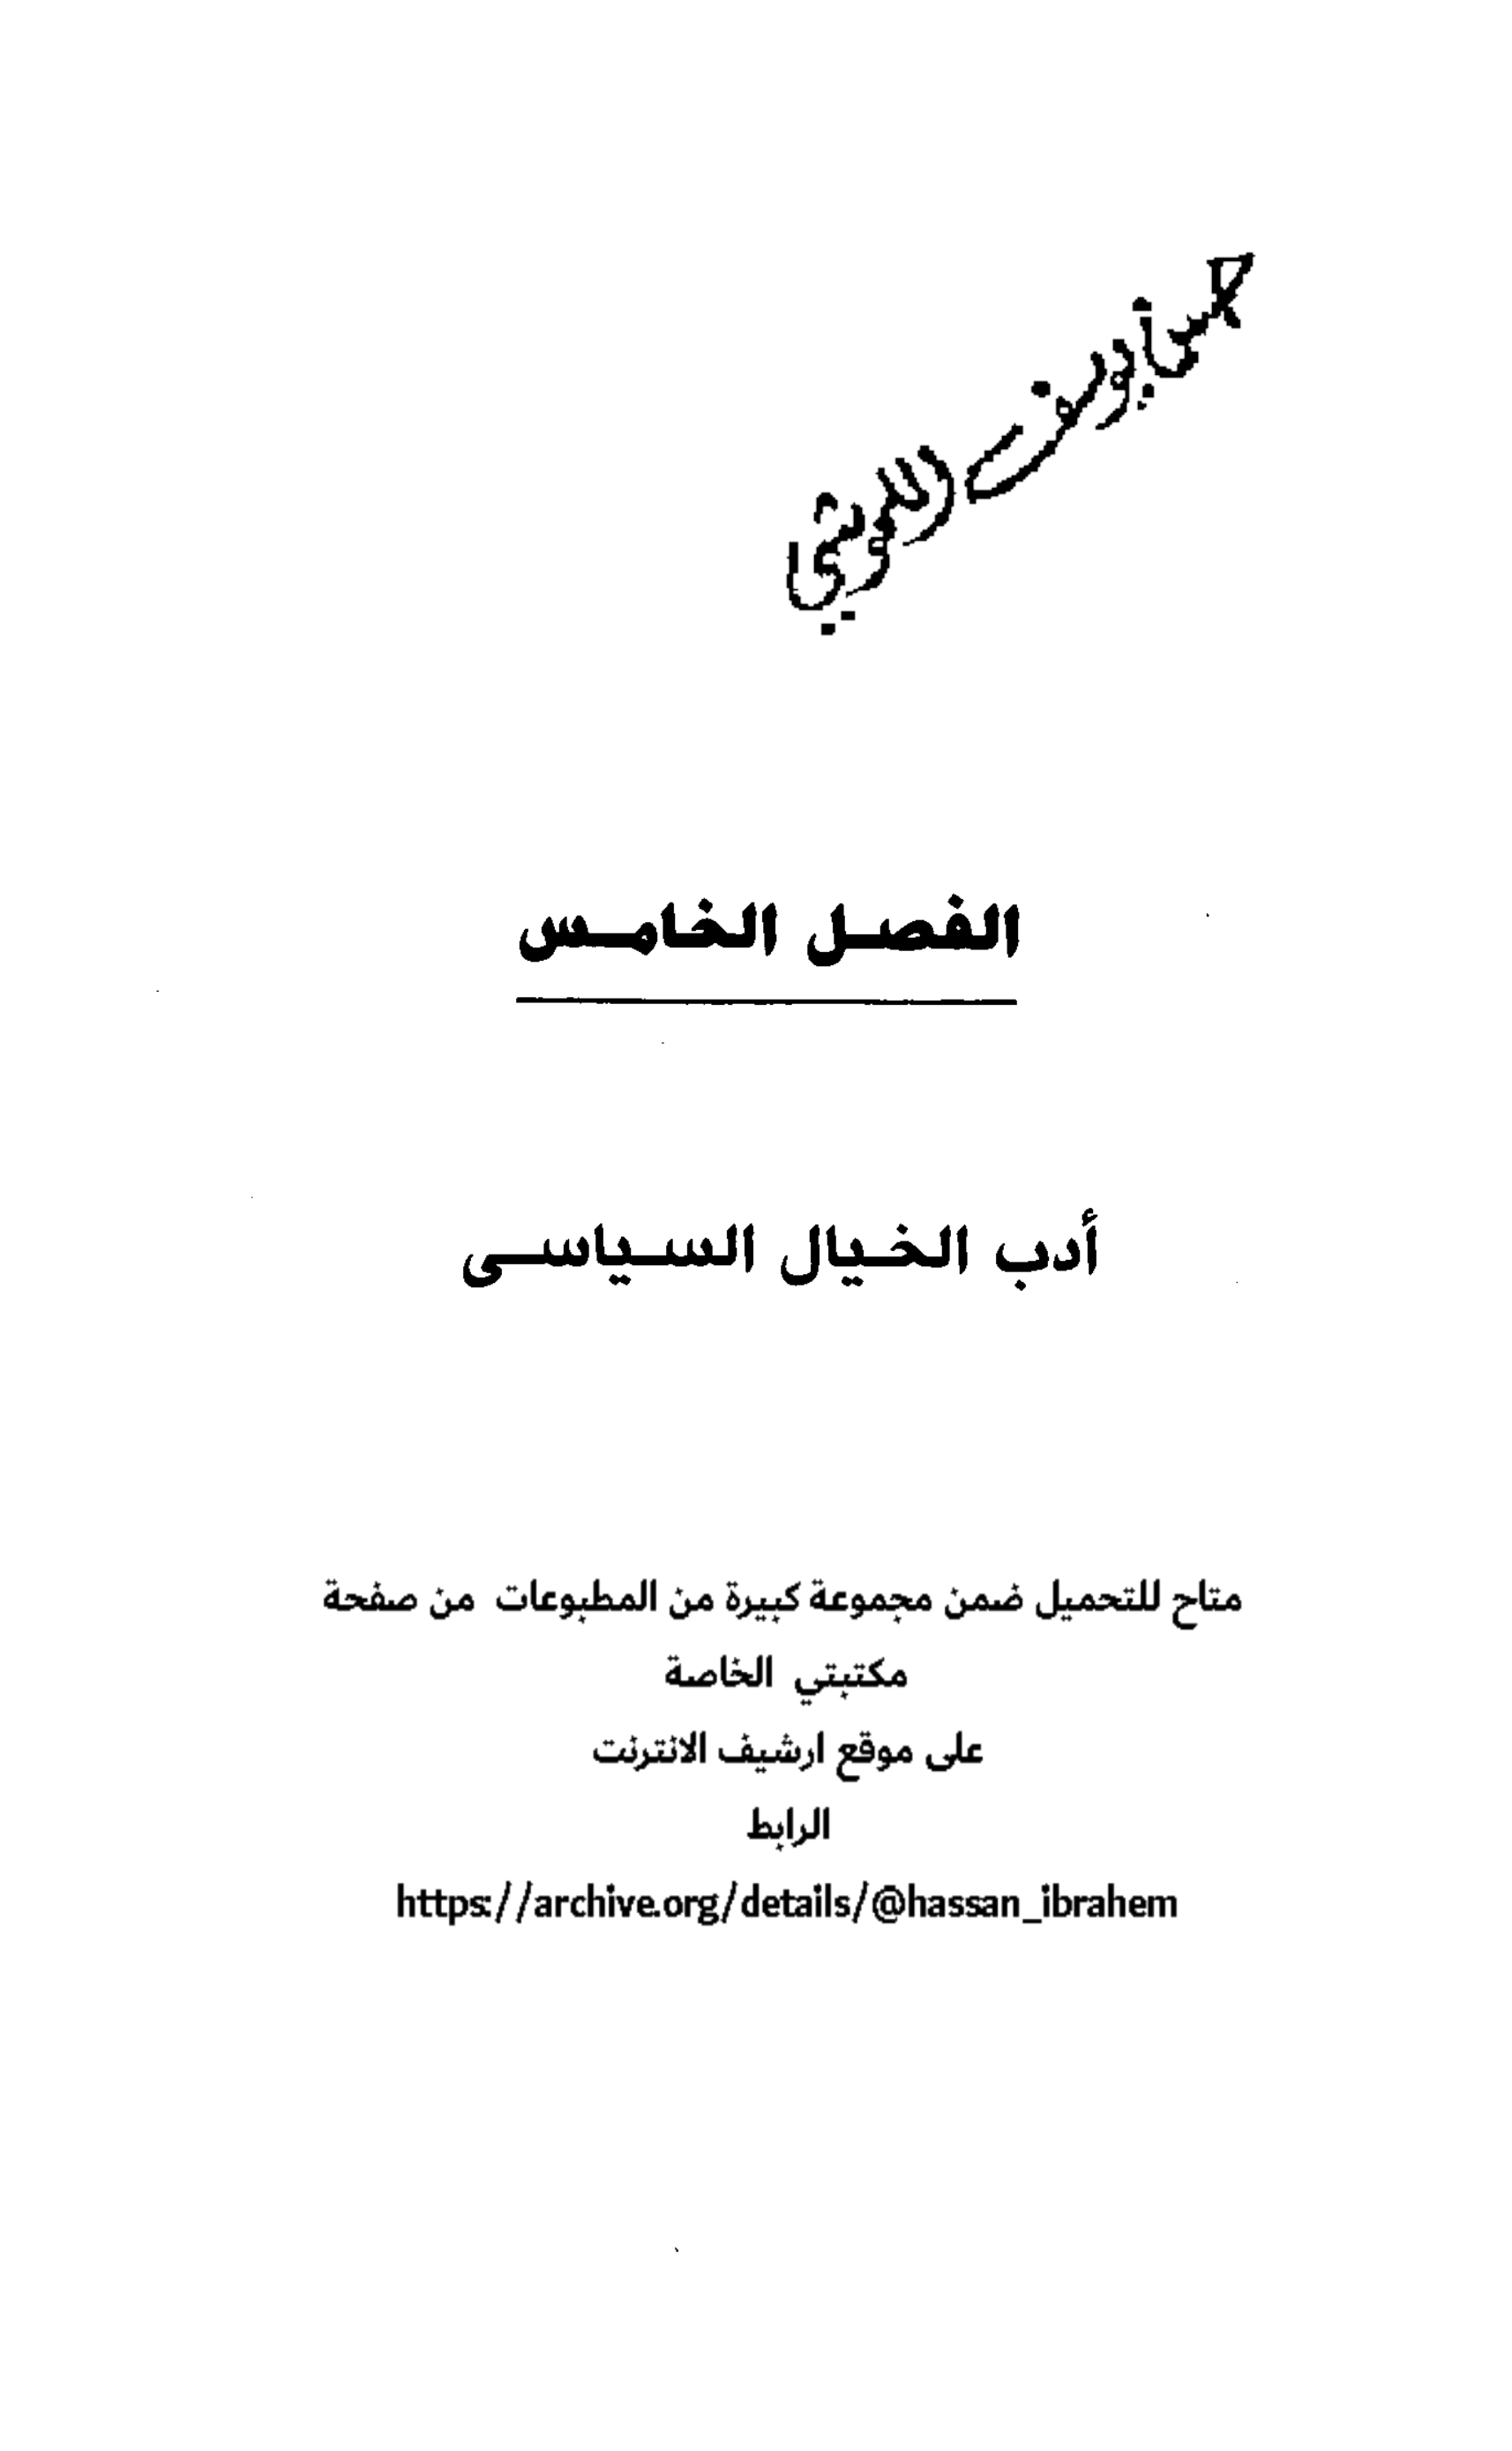 الفصل الخامس
أدب الخيال السياسى
متاح للتحميل ضمن مجموعة كبيرة من المطبوعات من صفحة
مكتبتي الخاصة
على موقع ارشيف الانترنت
الرابط
https://archive.org/details/@hassan_ibrahem